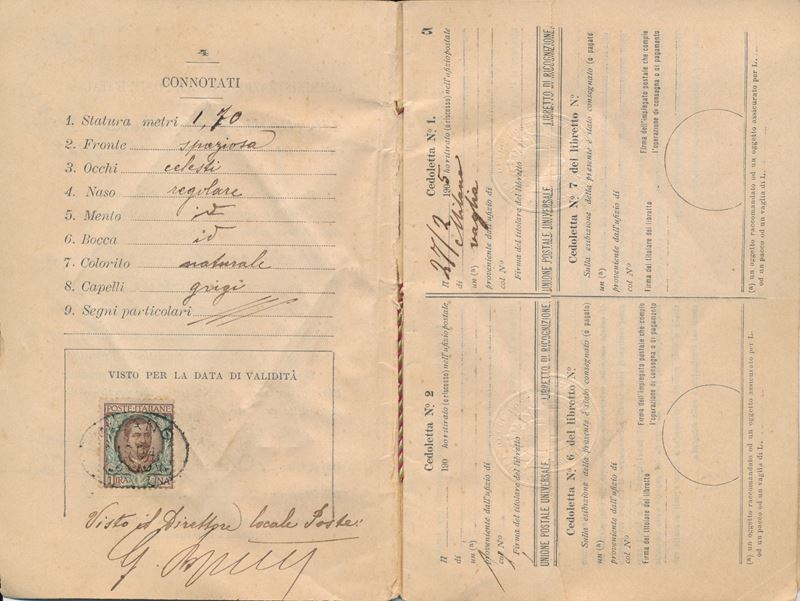 4
CONNOTATI
1. Statura metri 1,70
2. Fronte spaziosa
3. Occhi celesti
4. Naso regolare
5. Mento id
6. Bocca id
7. Colorito naturale
8. Capelli grigi
9. Segni particolari
VISTO PER LA DATA DI VALIDITÀ
POSTE·ITALIANE
1 LIRA UNA
Visto il Direttore locale Poste
5
Cedoletta N.° 1.
Il 27/2 1905 ho ritirato (o riscosso) nell'ufizio postale
di Milano
un (a) vaglia
proveniente dall'ufizio di
col N°
Firma del titolare del libretto
UNIONE POSTALE UNIVERSALE LIBRETTO DI RICOGNIZIONE
Cedoletta N° 7 del libretto N°
Sulla esibizione della presente è stato consegnato (o pagato
un (a)
proveniente dall'ufizio di
col N°
Firma del titolare del libretto
Firma dell'impiegato postale che compie
l'operazione di consegna o di pagamento
(a) un oggetto raccomandato od un oggetto assicurato per L.
od un pacco od un vaglia di L.
Cedoletta N.° 2
Il 190 ho ritirato (o riscosso) nell'ufizio postale
di
un (a)
proveniente dall'ufizio di
col N°
Firma del titolare del libretto
UNIONE POSTALE UNIVERSALE LIBRETTO DI RICOGNIZIONE
Cedoletta N° 6 del libretto N°
Sulla esibizione della presente è stato consegnato (o pagato)
un (a)
proveniente dall'ufizio di
col N°
Firma del titolare del libretto
Firma dell'impiegato postale che compie
l'operazione di consegna o di pagamento
(a) un oggetto raccomandato od un oggetto assicurato per L.
od un pacco od un vaglia di L.